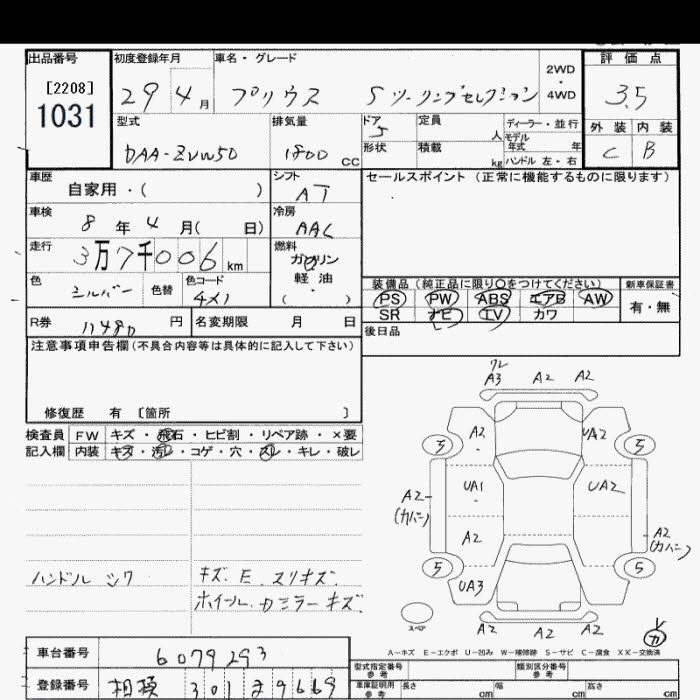 出品番号 初度登録年月 車名・グレード 2WD・4WD 評価点
[2208]
1031
29 4月 プリウス Sツーリングセレクション 3.5
型式 排気量 ドア 定員 人 ディーラー・並行 外装 内装
DAA-ZVW50 1800 CC 5 形状 積載 kg モデル年式 年 ハンドル 左・右 C B
車歴 自家用・( ) シフト AT セールスポイント (正常に機能するものに限ります)
車検 8年4月( 日) 冷房 AAC
走行 3万7千006km 燃料 ガソリン 軽油・( )
色 シルバー 色替 色コード 4X1
装備品(純正品に限り○をつけてください) 新車保証書
PS PW ABS エアB AW 有・無
SR ナビ TV カワ
R券 11480円 名変期限 月 日 後日品
注意事項申告欄(不具合内容等は具体的に記入して下さい)
修復歴 有 [箇所 ]
検査員 FW キズ・飛石・ヒビ割・リペア跡・×要
記入欄 内装 キズ・汚レ・コゲ・穴・スレ・キレ・破レ
ハンドル シワ
キズ.E.スリキズ.
ホイール.ドミラーキズ.
ワレ
A3 A2 A2
5 A2 UA2 5
UA1 UA2
A2 (カバー)
A2
A2 (カバー)
5 5
UA3
スペア A2 A2 A2
カ
A-キズ E-エクボ U-凹み W-補修跡 S-サビ C-腐食 XX-交換済
車台番号 6079293
型式指定番号 参考 類別区分番号 参考
登録番号 相模 301 29669
車庫証明用 参考 長さ cm 幅 cm 高さ cm